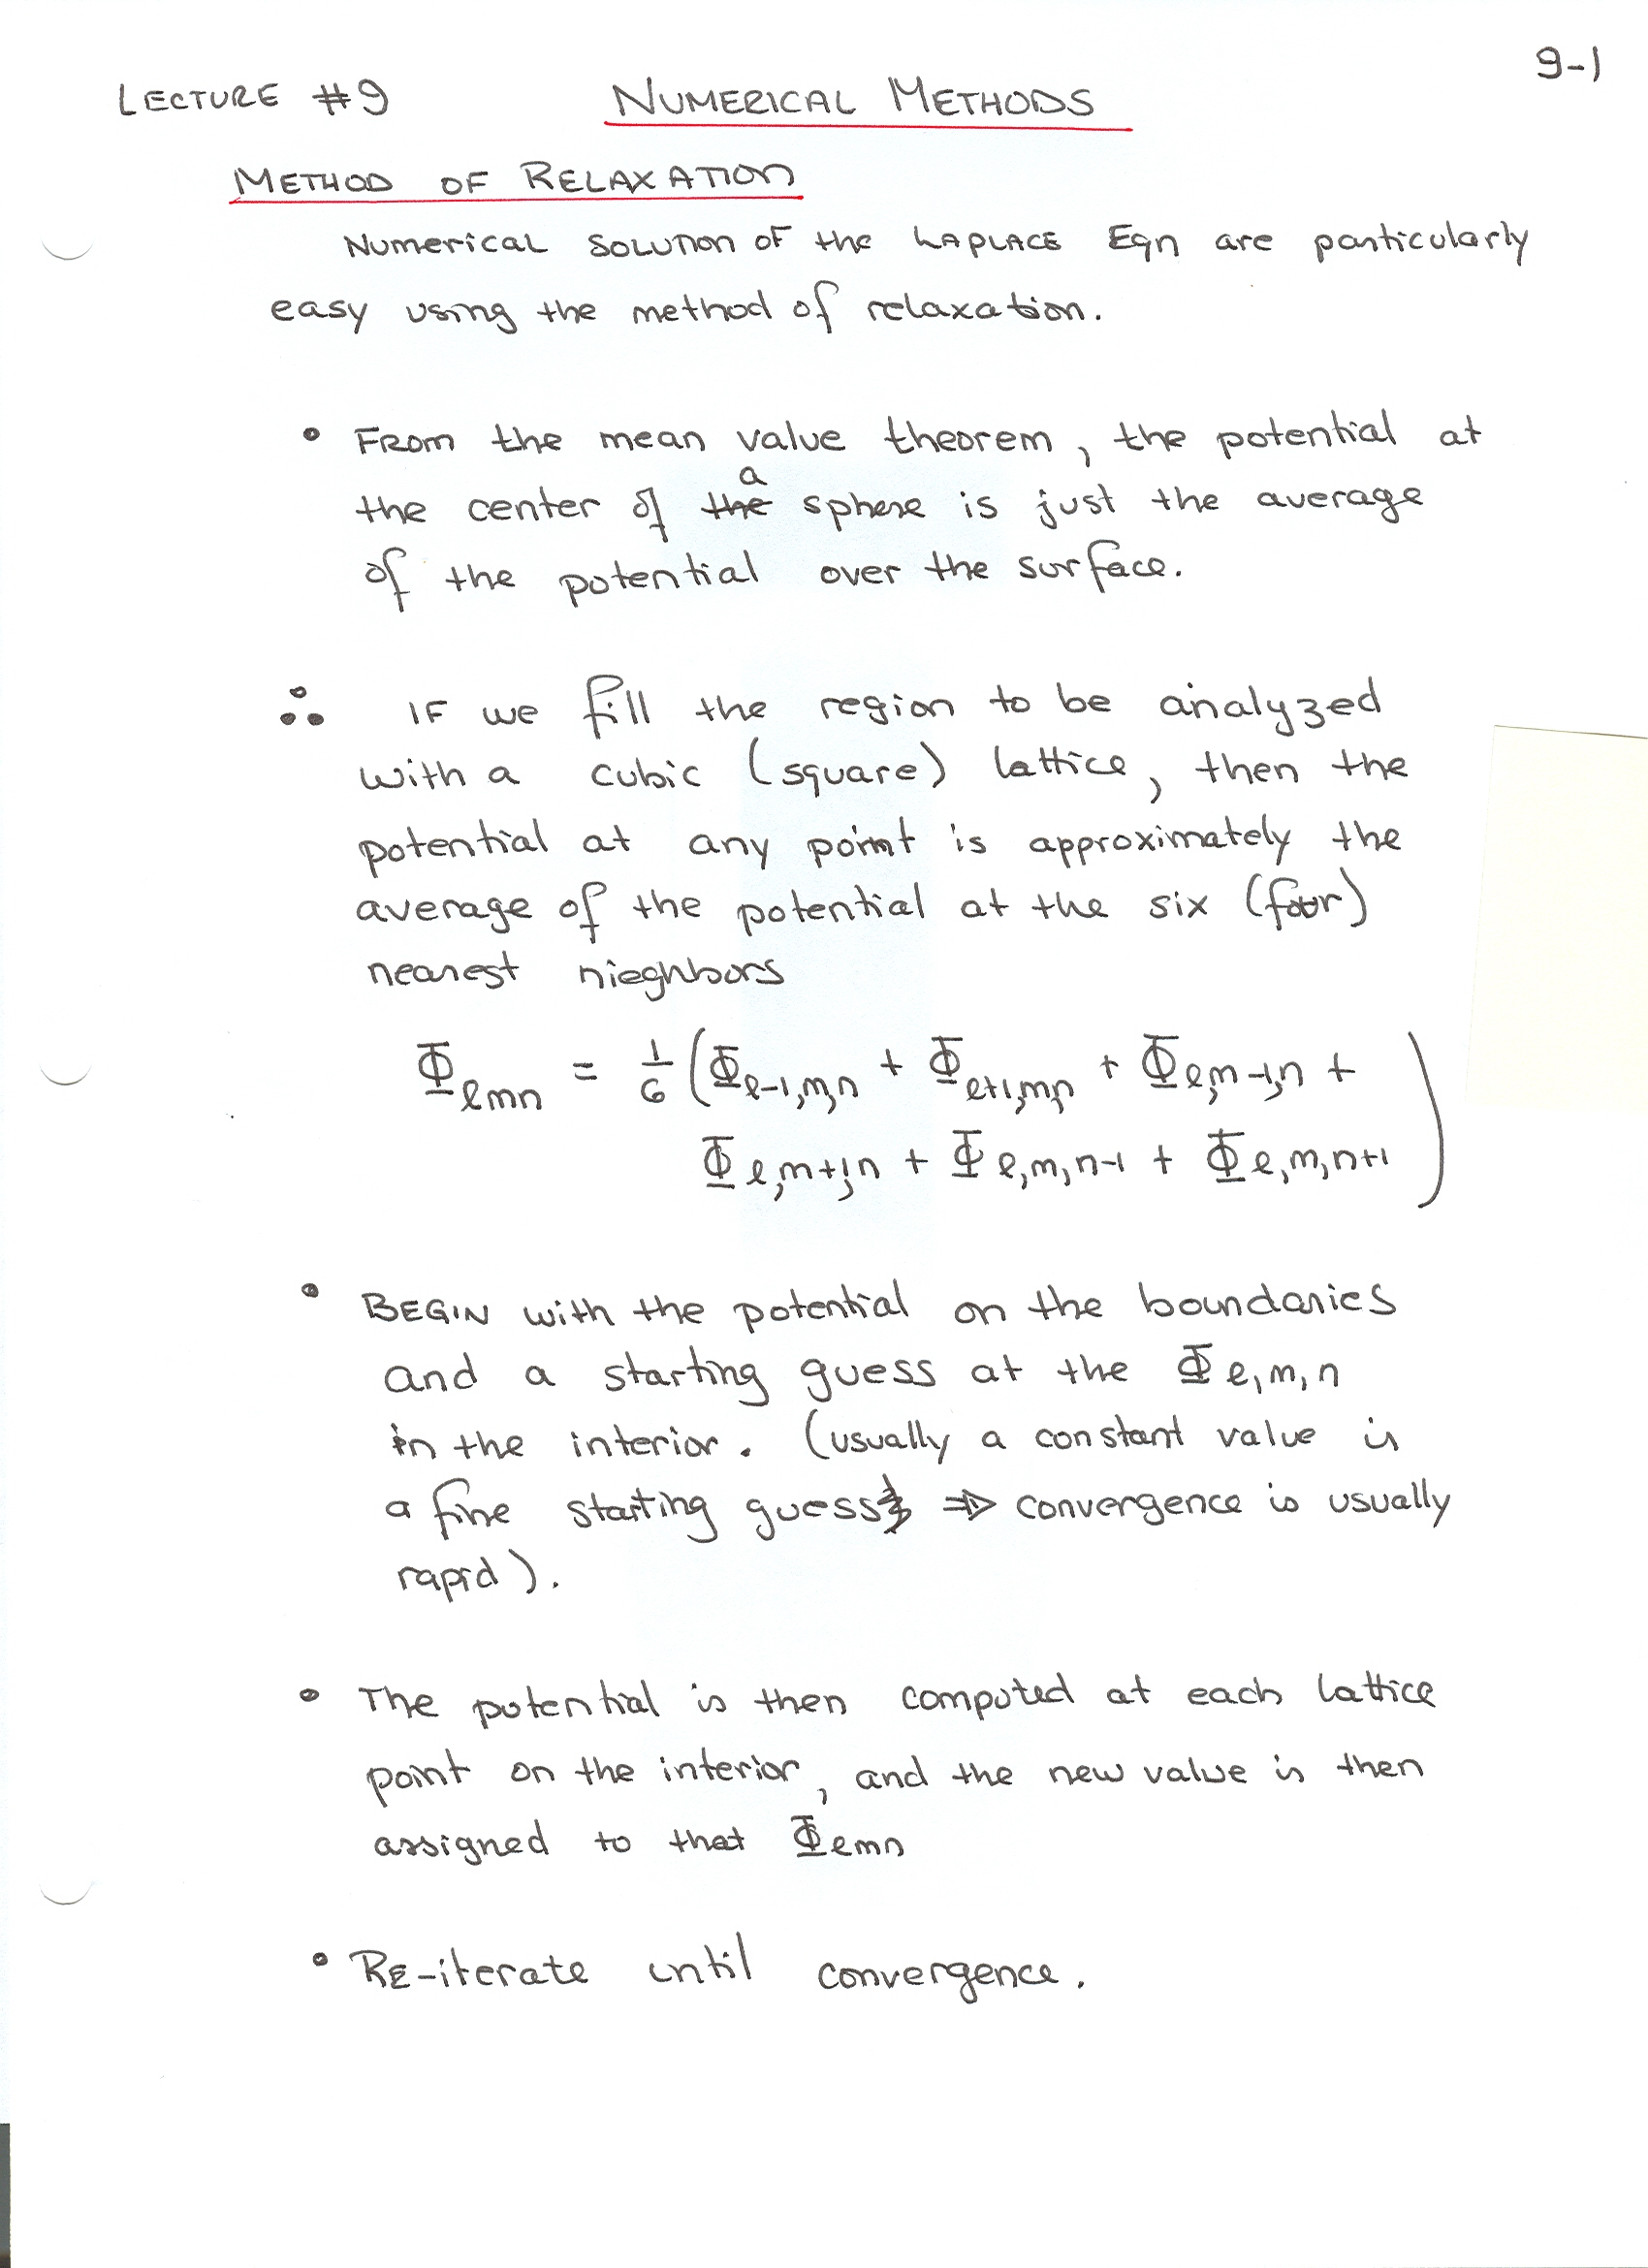 9-1
LECTURE #9 NUMERICAL METHODS
METHOD OF RELAXATION
Numerical SOLUTION OF the LAPLACE Eqn are particularly
easy using the method of relaxation.
• From the mean value theorem, the potential at
a
the center of the sphere is just the average
of the potential over the surface.
∴ IF we fill the region to be analyzed
with a cubic (square) lattice, then the
potential at any point is approximately the
average of the potential at the six (four)
nearest nieghbors
Φℓmn = 1/6 (Φℓ-1,m,n + Φℓ+1,m,n + Φℓ,m-1,n +
Φℓ,m+1,n + Φℓ,m,n-1 + Φℓ,m,n+1)
• BEGIN with the potential on the boundaries
and a starting guess at the Φℓ,m,n
in the interior. (usually a constant value is
a fine starting guess ⇒ convergence is usually
rapid).
• The potential is then computed at each lattice
point on the interior, and the new value is then
assigned to that Φℓmn
• RE-iterate until convergence.